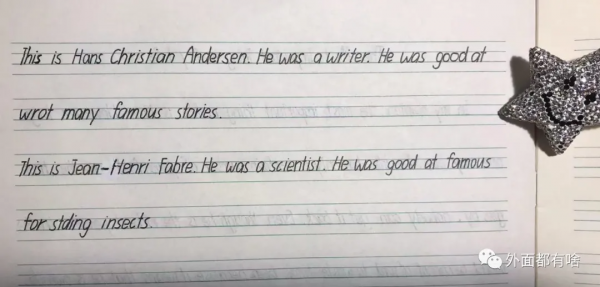 This is Hans Christian Andersen. He was a writer. He was good at
wrot many famous stories.
This is Jean-Henri Fabre. He was a scientist. He was good at famous
for stding insects.
外面都有啥